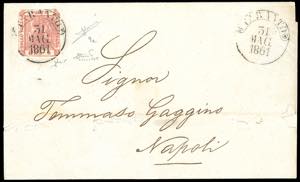 31
MAG.
1861
31
MAG.
1861
Signor
Tommaso Gaggino
Napoli